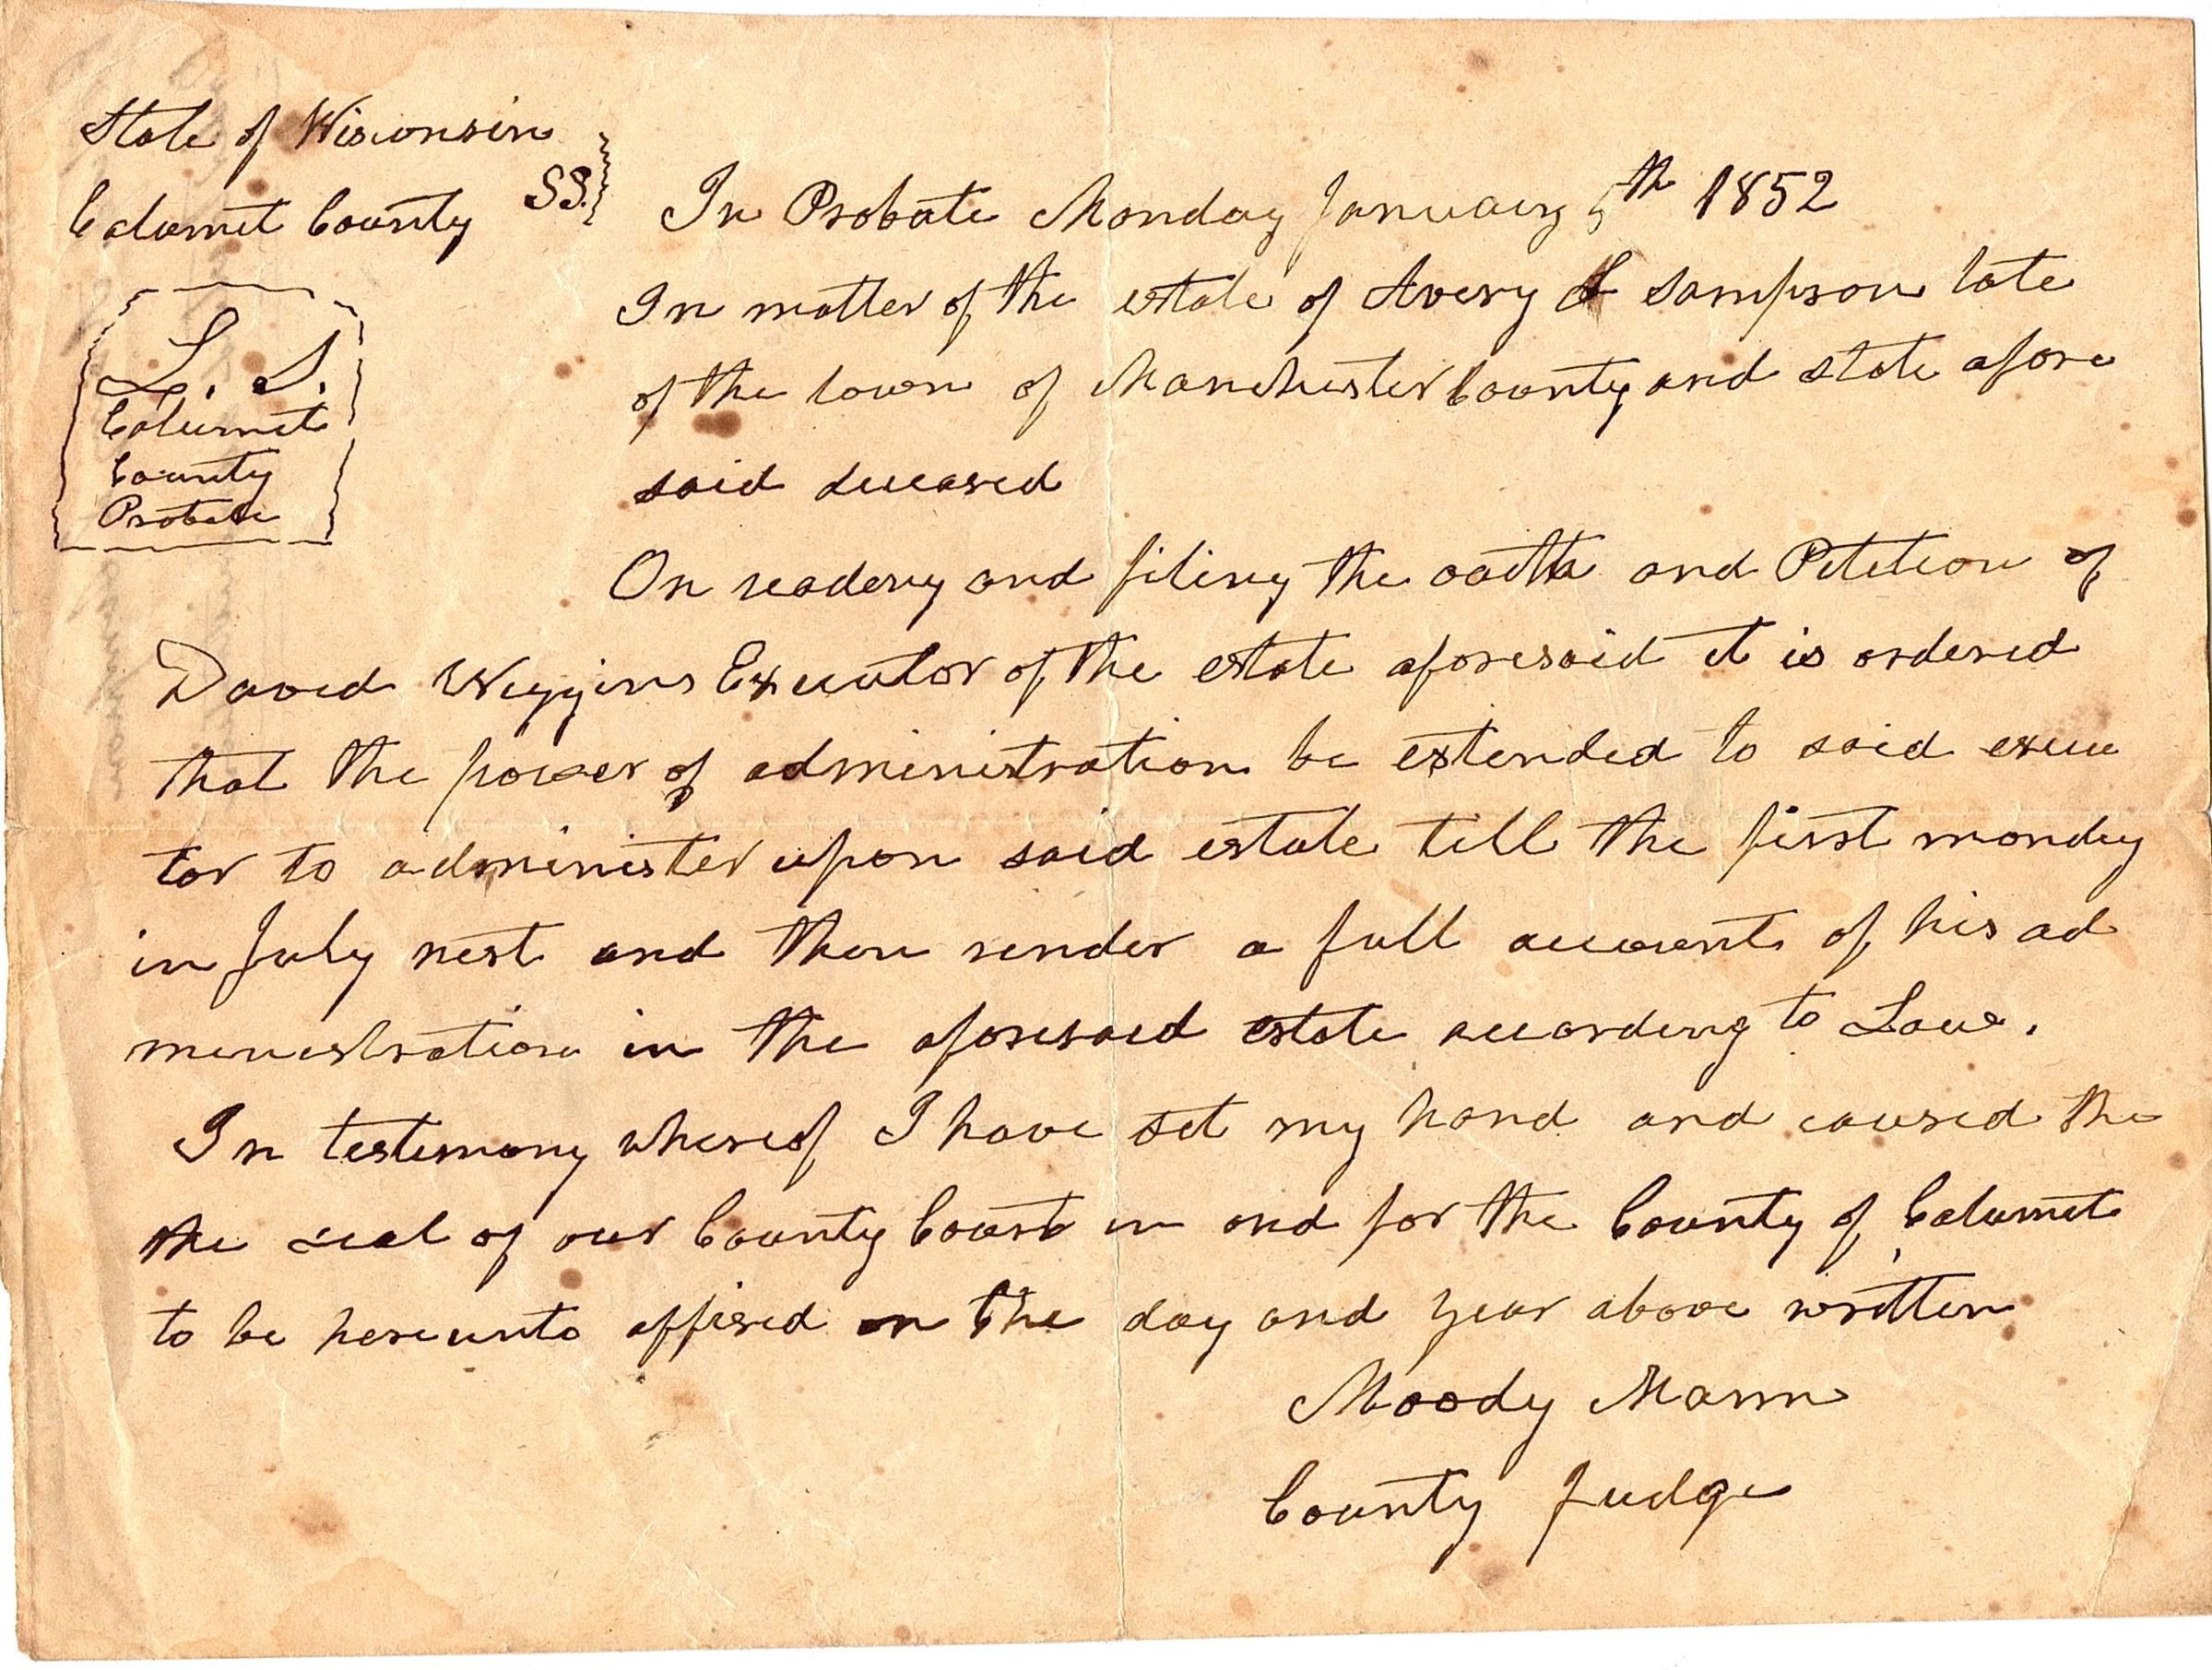 State of Wisconsin
Calumet County SS.
In Probate Monday January 5th 1852
L. S.
Calumet
County
Probate
In matter of the estate of Avery S Sampson late
of the town of Manchester County and state afore
said deceased
On readeng and filing the oath and Petition of
David Wiggins Executor of the estate aforesaid it is ordered
that the power of administration be extended to said execu
tor to administer upon said estate till the first monday
in July next and then render a full account of his ad
menestration in the aforesaid estate according to Law.
In testimony whereof I have set my hand and caused the
the seal of our County Court in and for the County of Calumet
to be hereunto affixed on the day and year above written
Moody Mann
County Judge